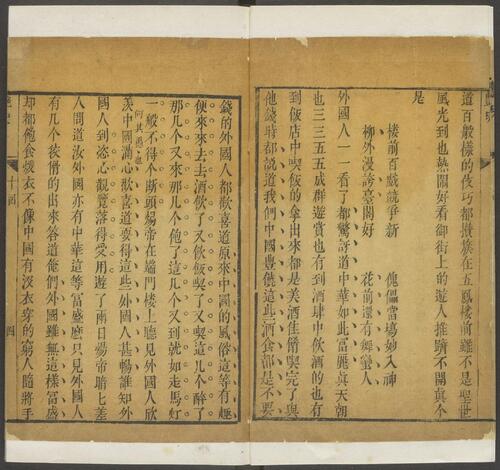 道百般樣的伎巧都攢簇在五鳳樓前雖不是聖世
風光到也熱鬧好看御街上的遊人推擠不開真个
是
樓前百戲競爭新 傀儡當場妙入神
柳外漫誇臺閣好 花前還有舞蠻人
外國人一一看了都驚訝道中華如此富麗真天朝
也三三五五成群遊賞也有到酒肆中飲酒的也有
到飯店中喫飯的拿出來都是美酒佳餚喫完了與
他錢時都說道我們中國豐饒這些酒食都是不要
錢的外國人都歡喜道原來中國的風俗這等有趣
便來來去去酒飲了又飲飯喫了又喫這几个醉了
那几个又來那几个飽了這几个又到就如走馬灯
一般不得个斷頭煬帝在端門樓上聽見外國人欣
羨中國滿心歡喜道要得這些外國人甚暢誰知外
國人到恣心觀覽落得受用遊了兩日煬帝賭七差
人問道汝外國亦有中華這等富盛麽只見外國人
有几个狡猾的出來答道他們外國雖無這樣富盛
却都飽食煖衣不像中國有沒衣穿的窮人隨將手
十四
四